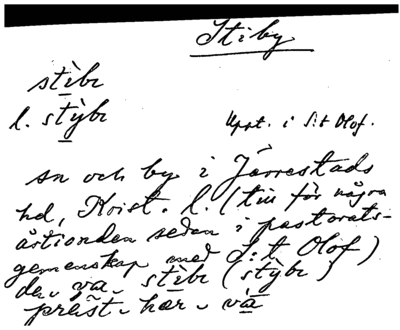 Stiby
stìbı
l. stỳbı
Uppt. i S:t Olof.
sn och by i Järrestads
hd, Krist. l. (till för några
årtionden sedan i pastorats-
gemenskap med S:t Olof)
de, va, stìbı (stỳbı)
präst. hær. và